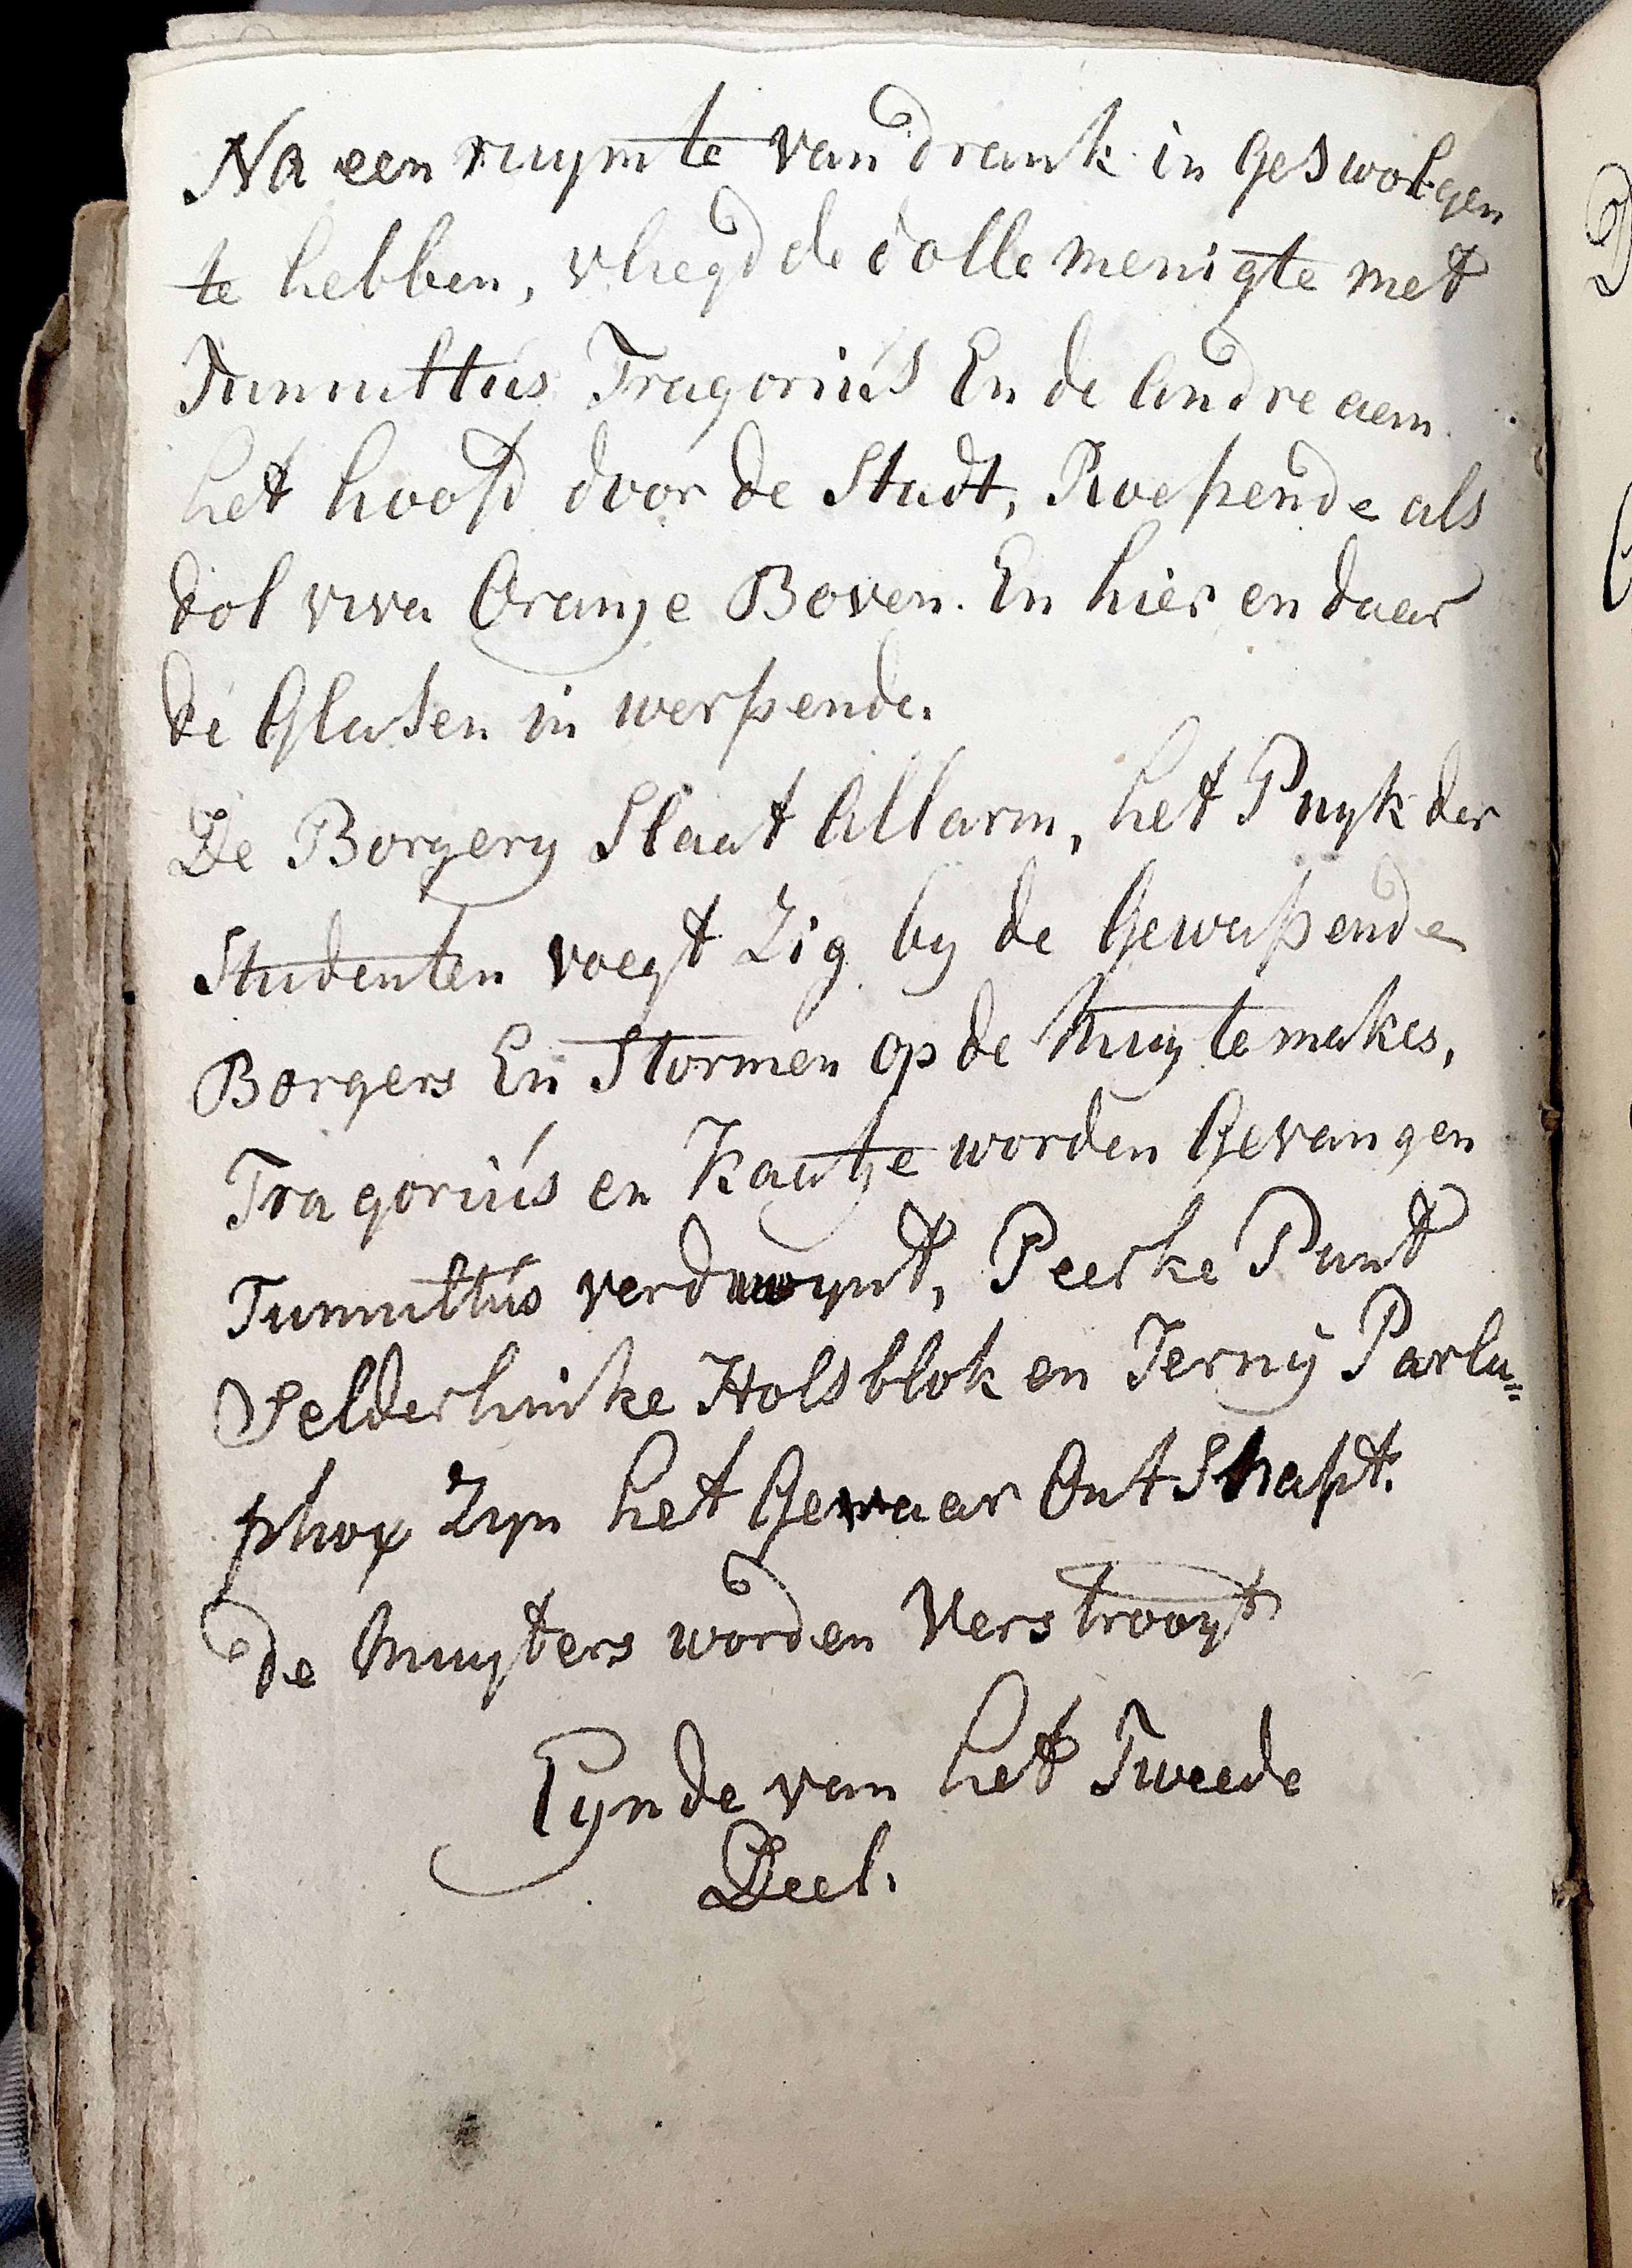 Na een ruymte van drank in geswolgen
te hebben, vliegd de dolle menigte met
Tumultus Tragorius En de andre aen
het hoofd door de Stadt, Roepende als
dol viva Oranje Boven. En hier en daar
de Glasen in werpende.
De Borgery Slaat Allarm, het Puyk der
Studenten voegt Zig by de Gewapende
Borgers En Stormen op de Muytemakers,
Tragorius en Kaatje worden Gevangen
Tumultus verdwynt, Peerke Punt
Selderlinke Holsblok en Jerny Parlu=
phox Zyn het Gevaar Ontsnapt.
de Muyters worden Verstrooyt
Eynde van het Tweede
Deel.